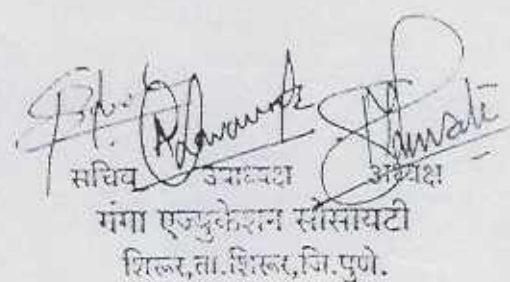 सचिव उपाध्यक्ष अध्यक्ष
गंगा एज्युकेशन सोसायटी
शिरूर,ता.शिरूर,जि.पुणे.